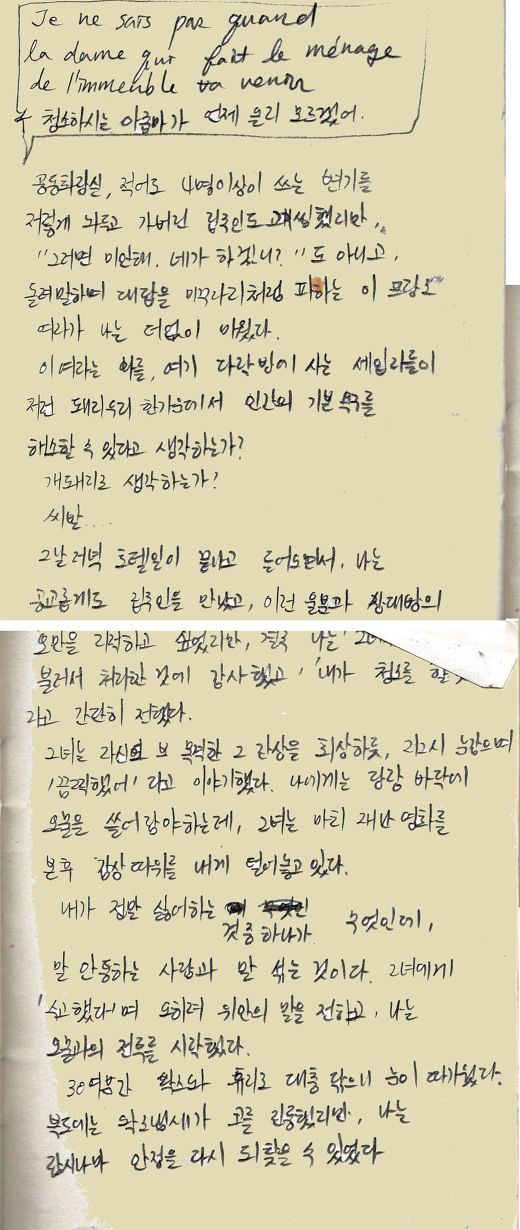 Je ne sais pas quand
la dame qui fait le ménage
de l'immeuble va venir
청소하시는 아줌마가 언제 올지 모르겠어.
공동화장실, 적어도 4명이상이 쓰는 변기를
저렇게 놔두고 가버린 집주인도 괘씸했지만,
"그러면 미안해. 네가 하겠니?"도 아니고,
돌려말하며 대답을 미꾸라지처럼 피하는 이 프랑스
여자가 나는 더없이 미웠다.
이 여자는 왜를, 여기 다락방에 사는 세입자들이
저런 돼지우리 한가운데서 인간의 기본 욕구를
해소할 수 있다고 생각하는가?
개돼지로 생각하는가?
씨발....
그날 저녁 호텔일이 끝나고 들어오면서, 나는
공교롭게도 집주인을 만났고, 이런 울분과 상대방의
오만을 지적하고 싶었지만, 결국 나는
불러서 처리한 것에 감사했고, '내가 청소를
라고 간단히 전했다.
그녀는 자신도 목격한 그 잔상을 회상하듯, 지그시 눈감으며
'끔찍했어' 라고 이야기했다. 나에게는 당장 바닥에
오물을 쓸어담아야하는데, 그녀는 마치 재난영화를
본후 감상 따위를 내게 털어놓고 있다.
내가 정말 싫어하는 것중 하나가 무엇인데,
말 안통하는 사람과 말 섞는 것이다. 그녀에게
'수고했다'며 오히려 위안의 말을 전하고, 나는
오물과의 전투를 시작했다.
30여분간 락스와 휴지로 대충 닦으니 눈이 따가웠다.
복도에는 락스냄새가 코를 진동했지만, 나는
잠시나마 안정을 다시 되찾을 수 있었다